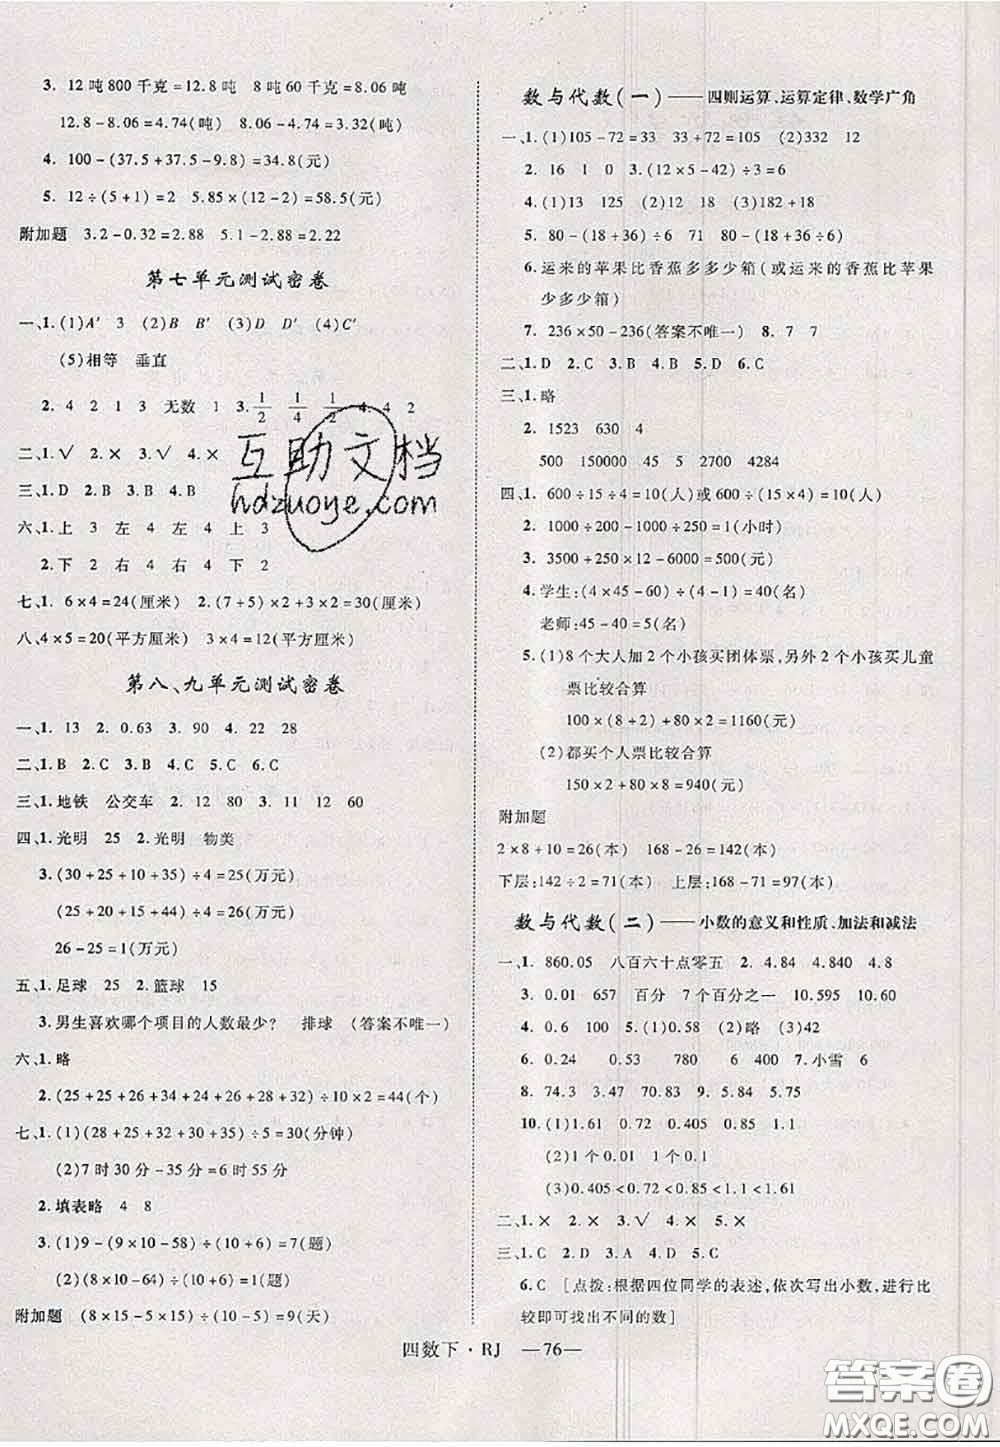 3. 12吨800千克=12.8吨 8吨60千克=8.06吨
12.8-8.06=4.74(吨) 8.06-4.74=3.32(吨)
4. 100-(37.5+37.5-9.8)=34.8(元)
5. 12÷(5+1)=2 5.85×(12-2)=58.5(元)
附加题 3.2-0.32=2.88 5.1-2.88=2.22
第七单元测试密卷
一、1.(1)A′ 3 (2)B B′ (3)D D′ (4)C′
(5)相等 垂直
2. 4 2 1 3 无数 1 3. 1/2 1/4 1/2 4. 4 2
二、1.√ 2.× 3.√ 4.×
三、1.D 2.B 3.D 4.B 5.B
六、1.上 3 左 4 左 4 上 3
2.下 2 右 4 右 4 下 2
七、1. 6×4=24(厘米) 2.(7+5)×2+3×2=30(厘米)
八、4×5=20(平方厘米) 3×4=12(平方厘米)
第八、九单元测试密卷
一、1. 13 2. 0.63 3. 90 4. 22 28
二、1.B 2.C 3.B 4.C 5.C 6.C
三、1.地铁 公交车 2. 12 80 3. 11 12 60
四、1.光明 25 2.光明 物美
3.(30+25+10+35)÷4=25(万元)
(25+20+12+47)÷4=26(万元)
26-25=1(万元)
五、1.足球 25 2.篮球 15
3.男生喜欢哪个项目的人数最少? 排球 (答案不唯一)
六、1.略
2.(25+25+26+34+24+26+25+31+4)÷10×2=44(个)
七、1.(1)(28+25+32+30+35)÷5=30(分钟)
(2)7时30分-35分=6时55分
2.填表略 4 8
3.(1)9-(9×10-58)÷(10+6)=7(题)
(2)(8×10-64)÷(10+6)=1(题)
附加题 (8×15-5×15)÷(10-5)=9(天)
数与代数(一)——四则运算、运算定律、数学广角
一、1.(1)105-72=33 33+72=105 (2)332 12
2. 16 1 0 3.(12×5-42)÷3=6
4.(1)13 125 (2)18 2 (3)182+18
5. 80-(18+36)÷6 71 80-(18+36÷6)
6.运来的苹果比香蕉多多少箱(或运来的香蕉比苹果
少多少箱)
7. 236×50-236(答案不唯一) 8. 7 7
二、1.D 2.C 3.B 4.B 5.D 6.C
三、1.略
2. 1523 630 4
500 150000 45 5 2700 4284
四、1. 600÷15÷4=10(人)或600÷(15×4)=10(人)
2. 1000÷200-1000÷250=1(小时)
3. 3500+250×12-6000=500(元)
4.学生:(4×45-60)÷(4-1)=40(名)
老师:45-40=5(名)
5.(1)8个大人加2个小孩买团体票,另外2个小孩买儿童
票比较合算
100×(8+2)+80×2=1160(元)
(2)都买个人票比较合算
150×2+80×8=940(元)
附加题
2×8+10=26(本) 168-26=142(本)
下层:142÷2=71(本) 上层:168-71=97(本)
数与代数(二)——小数的意义和性质、加法和减法
一、1. 860.05 八百六十点零五 2. 4.84 4.840 4.8
3. 0.01 657 百分 7个百分之一 10.605 10.60
4. 0.6 100 5.(1)略 (2)略 (3)42
6. 0.24 0.53 780 6 400 7.小雪 6
8. 74.3 3.87 70.83 9. 5.84 5.75
10.(1)1.61 0.72 0.405 0.85 1.1
(2)1个0.01 1个0.1
(3)0.405<0.72<0.85<1.1<1.61
二、1.× 2.× 3.√ 4.× 5.×
三、1.C 2.D 3.A 4.D 5.C
6.C [点拨:根据四位同学的表述,依次写出小数,进行比
较即可找出不同的数]
四数下·RJ —76—
互助文档
hdzuoye.com
答案圈
MXQE.COM